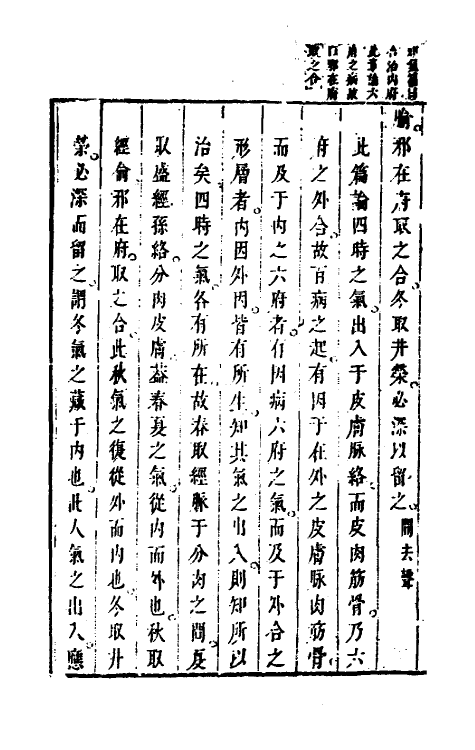 合治内府
此章論六
府之病故
曰邪在府
取之合
腧邪在府取之合冬取井滎必深以留之。間去聲
此篇論四時之氣出入于皮膚脉絡而皮肉筋骨乃六
府之外合故百病之起有因于在外之皮膚脉肉筋骨
而及于内之六府者有因病六府之氣而及于外合之
形層者内因外因皆有所生知其氣之出入則知所以
治矣四時之氣各有所在故春取經脈于分肉之間夏
取盛經孫絡分肉皮膚葢春夏之氣從内而外也秋取
經俞邪在府取之合此秋氣之復從外而内也冬取井
滎必深而留之謂冬氣之藏于内也此人氣之出入應